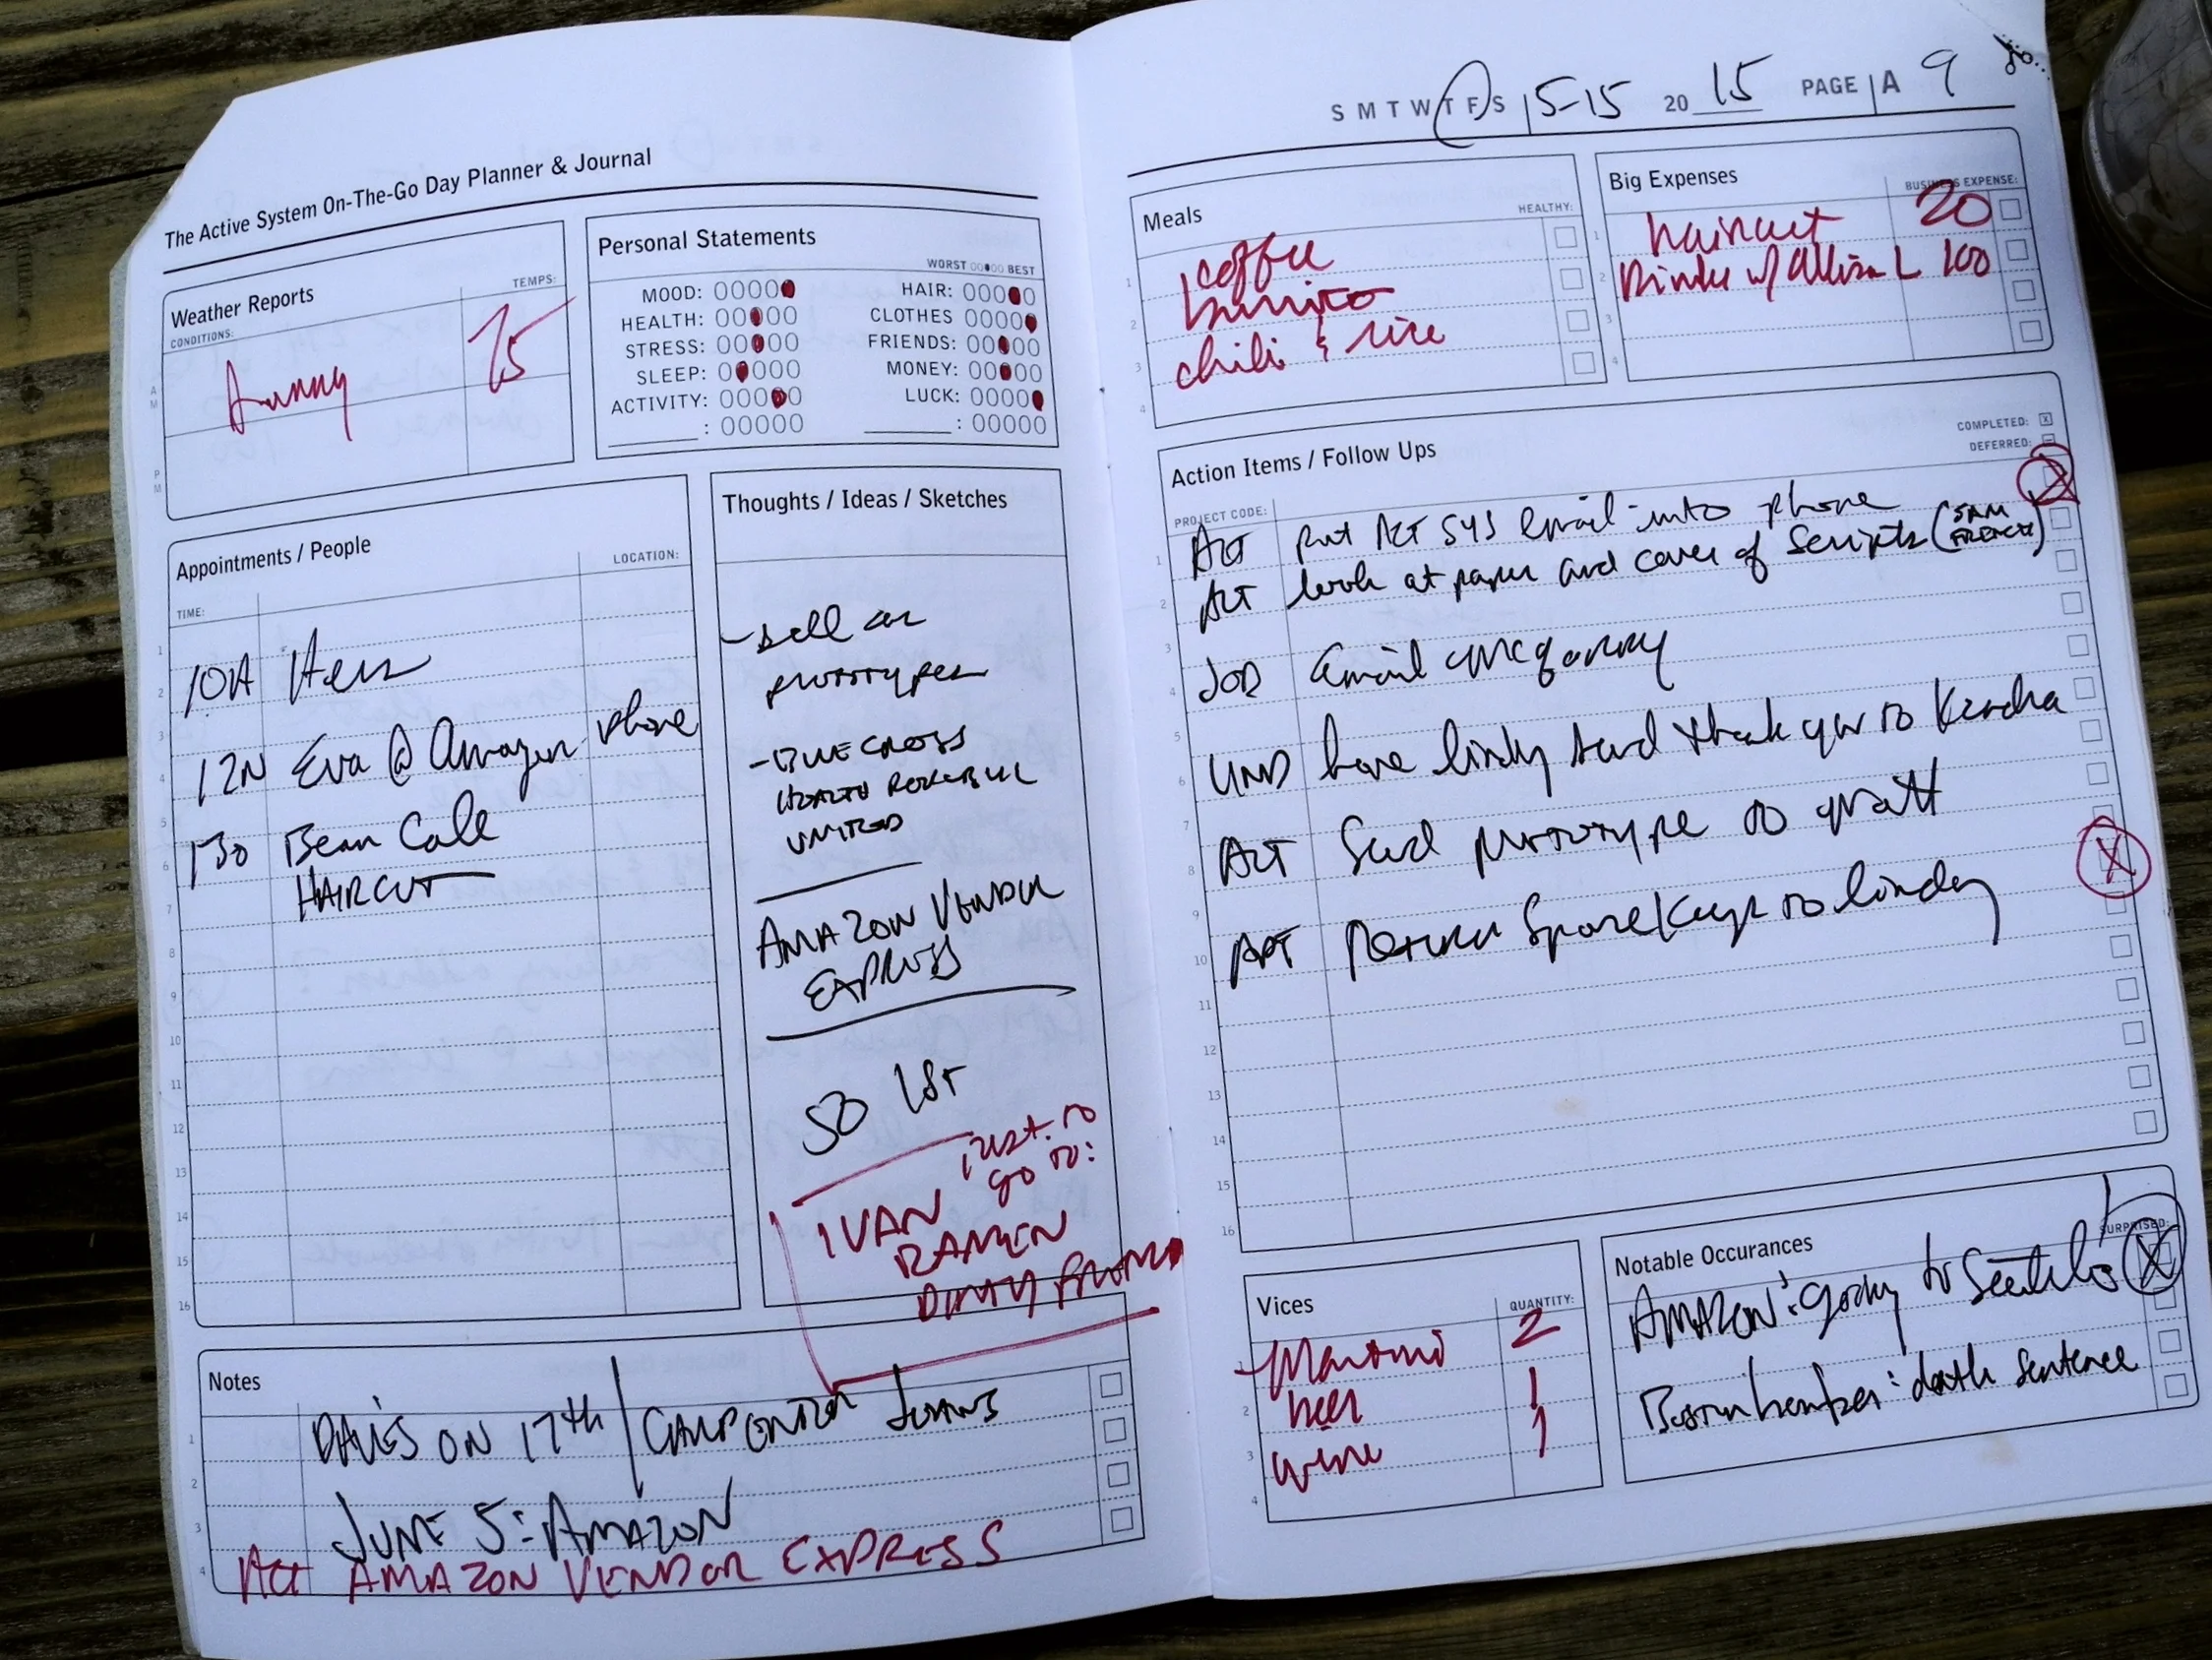 The Active System On-The-Go Day Planner & Journal
Weather Reports
TEMPS:
CONDITIONS:
AM
PM
Sunny 75
Personal Statements
WORST 00000 BEST
MOOD: 00000 HAIR: 00000
HEALTH: 00000 CLOTHES 00000
STRESS: 00000 FRIENDS: 00000
SLEEP: 00000 MONEY: 00000
ACTIVITY: 00000 LUCK: 00000
: 00000 : 00000
Appointments / People
LOCATION:
TIME:
1
2
3
4
5
6
7
8
9
10
11
12
13
14
15
16
10A Hers
12N Eva @ Amazon phone
130 Bean Cafe
HAIRCUT
Thoughts / Ideas / Sketches
- sell on
prototypes
- BLUE CROSS
HEALTH REPUBLIC
UNITED
AMAZON VENDOR
EXPRESS
50 1st
just to
go to:
IVAN
RAMEN
DIRTY FRENCH
Notes
1
2
3
4
DAVIS ON 17th / CARPENTER
JUNE 5: AMAZON
ACT AMAZON VENDOR EXPRESS
S M T W T F S 5-15 20 15 PAGE A 9
Meals
HEALTHY:
1
2
3
4
coffee
burrito
chili & rice
Big Expenses
BUSINESS EXPENSE:
1
2
3
4
haircut 20
Drinks w/ Allison L 100
Action Items / Follow Ups
COMPLETED: X
DEFERRED: –
PROJECT CODE:
1
2
3
4
5
6
7
8
9
10
11
12
13
14
15
16
ACT put ACT SYS email into phone
ACT look at paper and cover of scripts (SAM FRENCH)
JOB email McGarry
UND have lindy send thank you to Kendra
ACT Send prototype to Matt
APT Return Spare Keys to lindsy
Vices
QUANTITY:
1
2
3
4
Martini 2
beer 1
wine 1
Notable Occurances
SURPRISED:
AMAZON: going to Seattle
Boston bomber: death sentence